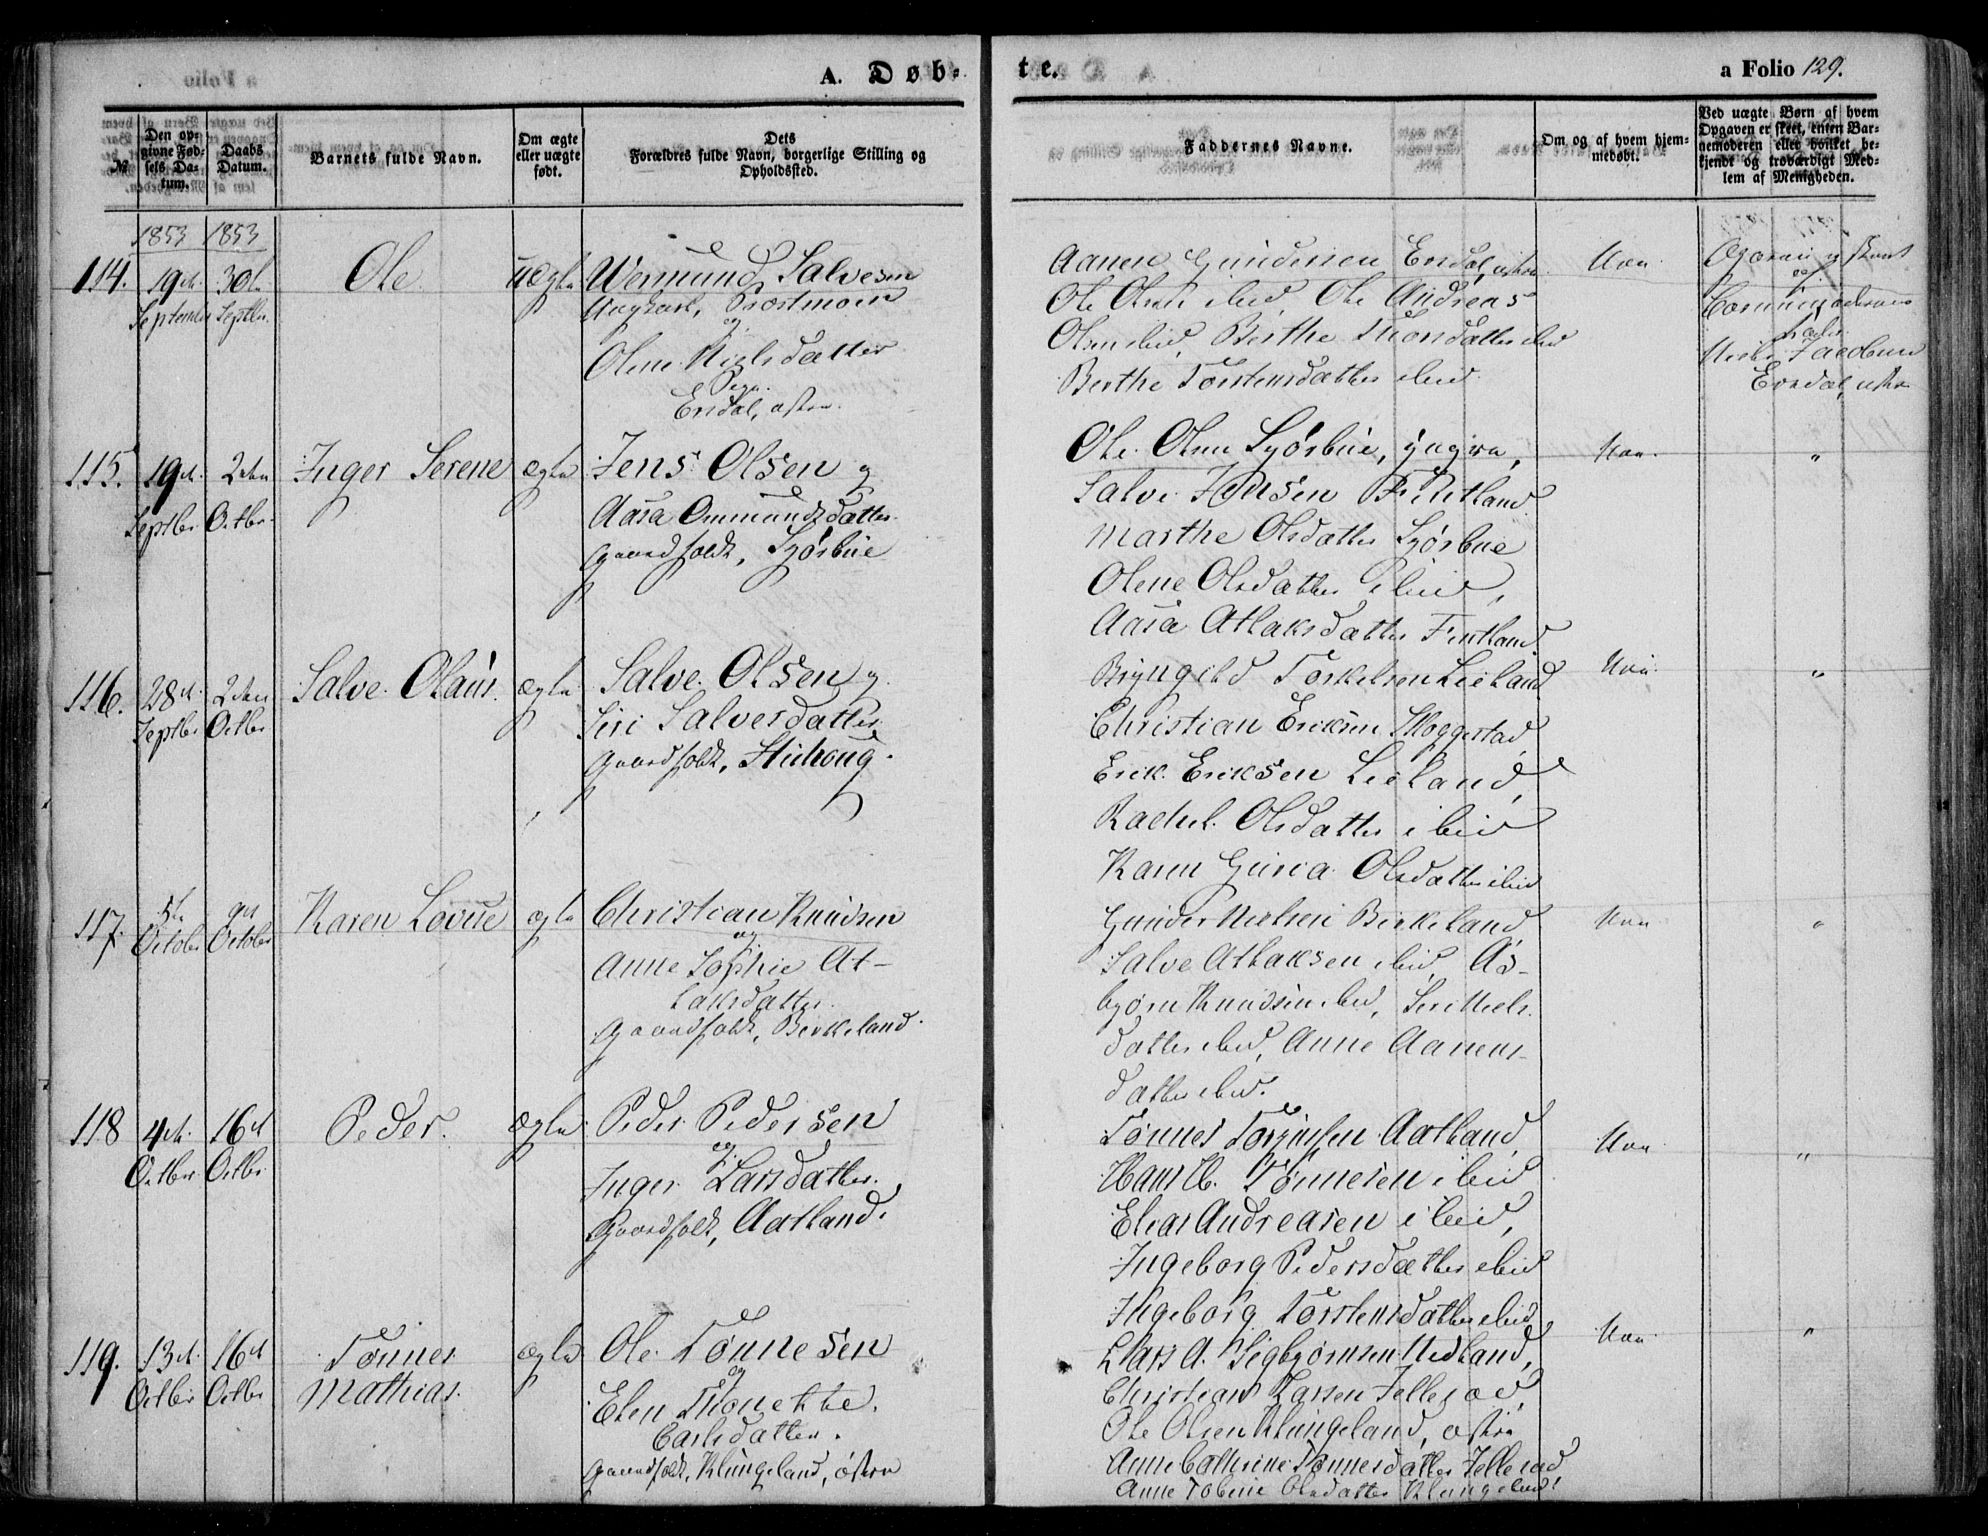 A. Døb-
te.
a Folio 129.
№
Den op-
givne Fød-
sels Da-
tum.
Daabs
Datum.
Barnets fulde Navn.
Om ægte
eller uægte
født.
Dets
Forældres fulde Navn, borgerlige Stilling og
Opholdssted.
Faddernes Navne.
Om og af hvem hjem-
medøbt.
Ved uægte Børn af hvem
Opgaven er skeet, enten Bar-
nemoderen eller hvilket be-
kjendt og troværdigt Med-
lem af Menigheden.
1853 1853
114.
19de
September
30te
Septbr.
Ole
uægte
Wermund Salvesen
Ungkarl,
og
Olene Nielsdatter
Pige
Ersdal, østre.
Aanen Gundersen Ersdal, østre
Ole Olsen ibid, Ole Andreas
Olsen ibid, Berthe Thorsdatter ibid
Berthe Torstensdatter ibid.
Nei
og
Niels Jacobsen
Ersdal, østre
115.
19de
Septbr
2den
Octbr.
Inger Serene
ægte
Jens Olsen og
Aasa Ommundsdatter
Gaardfolk, Sjørbue
Ole Olsen Sjørbue, yngre,
Salve Hansen Fintland
Marthe Olsdatter Sjørbue
Olene Olsdatter ibid,
Aasa Atlaksdatter Fintland
Nei
"
116.
28de
Septbr
2den
Octbr
Salve Olaus.
ægte
Salve Olsen og
Siri Salvesdatter
Gaardfolk,
Bryngeld Torkelsen Leeland
Christian Eriksen Skoggestad,
Erik Eriksen Leeland,
Rachel Olsdatter ibid
Karen Guria Olsdatter ibid
Nei
"
117.
5te
October
9de
October
Karen Lovise
ægte
Christian Knudsen
og
Anne Sophie At-
laksdatter
Gaardfolk, Birkeland.
Gunder Nielsen Birkeland
Salve Atlaksen ibid, As-
bjørn Knudsen ibid, Seri Niels-
datter ibid, Anne Aanens-
datter ibid.
Nei
"
118
4de
Octbr
16de
Octbr
Peder.
ægte
Peder Pedersen
og
Inger Larsdatter
Gaardfolk, Aatland.
Tønnes Torjussen Aatland,
Hans H. Tønnesen ibid
Elias Andreasen ibid,
Ingeborg Pedersdatter ibid
Ingeborg Torstensdatter ibid
Nei
"
119.
13de
Octbr
16de
Octbr
Tønnes
Mathias.
ægte
Ole Tønnesen
og
Elen Thonette
Carlsdatter.
Gaardfolk, Klungeland, østre
Lars A. Sigbjørnsen Nedland,
Christian Larsen Jellesad,
Ole Olsen Klungeland, østre
Anne Cathrine Tønnesdatter Jellesad
Anne Tobine Olsdatter Klungeland
Nei
"